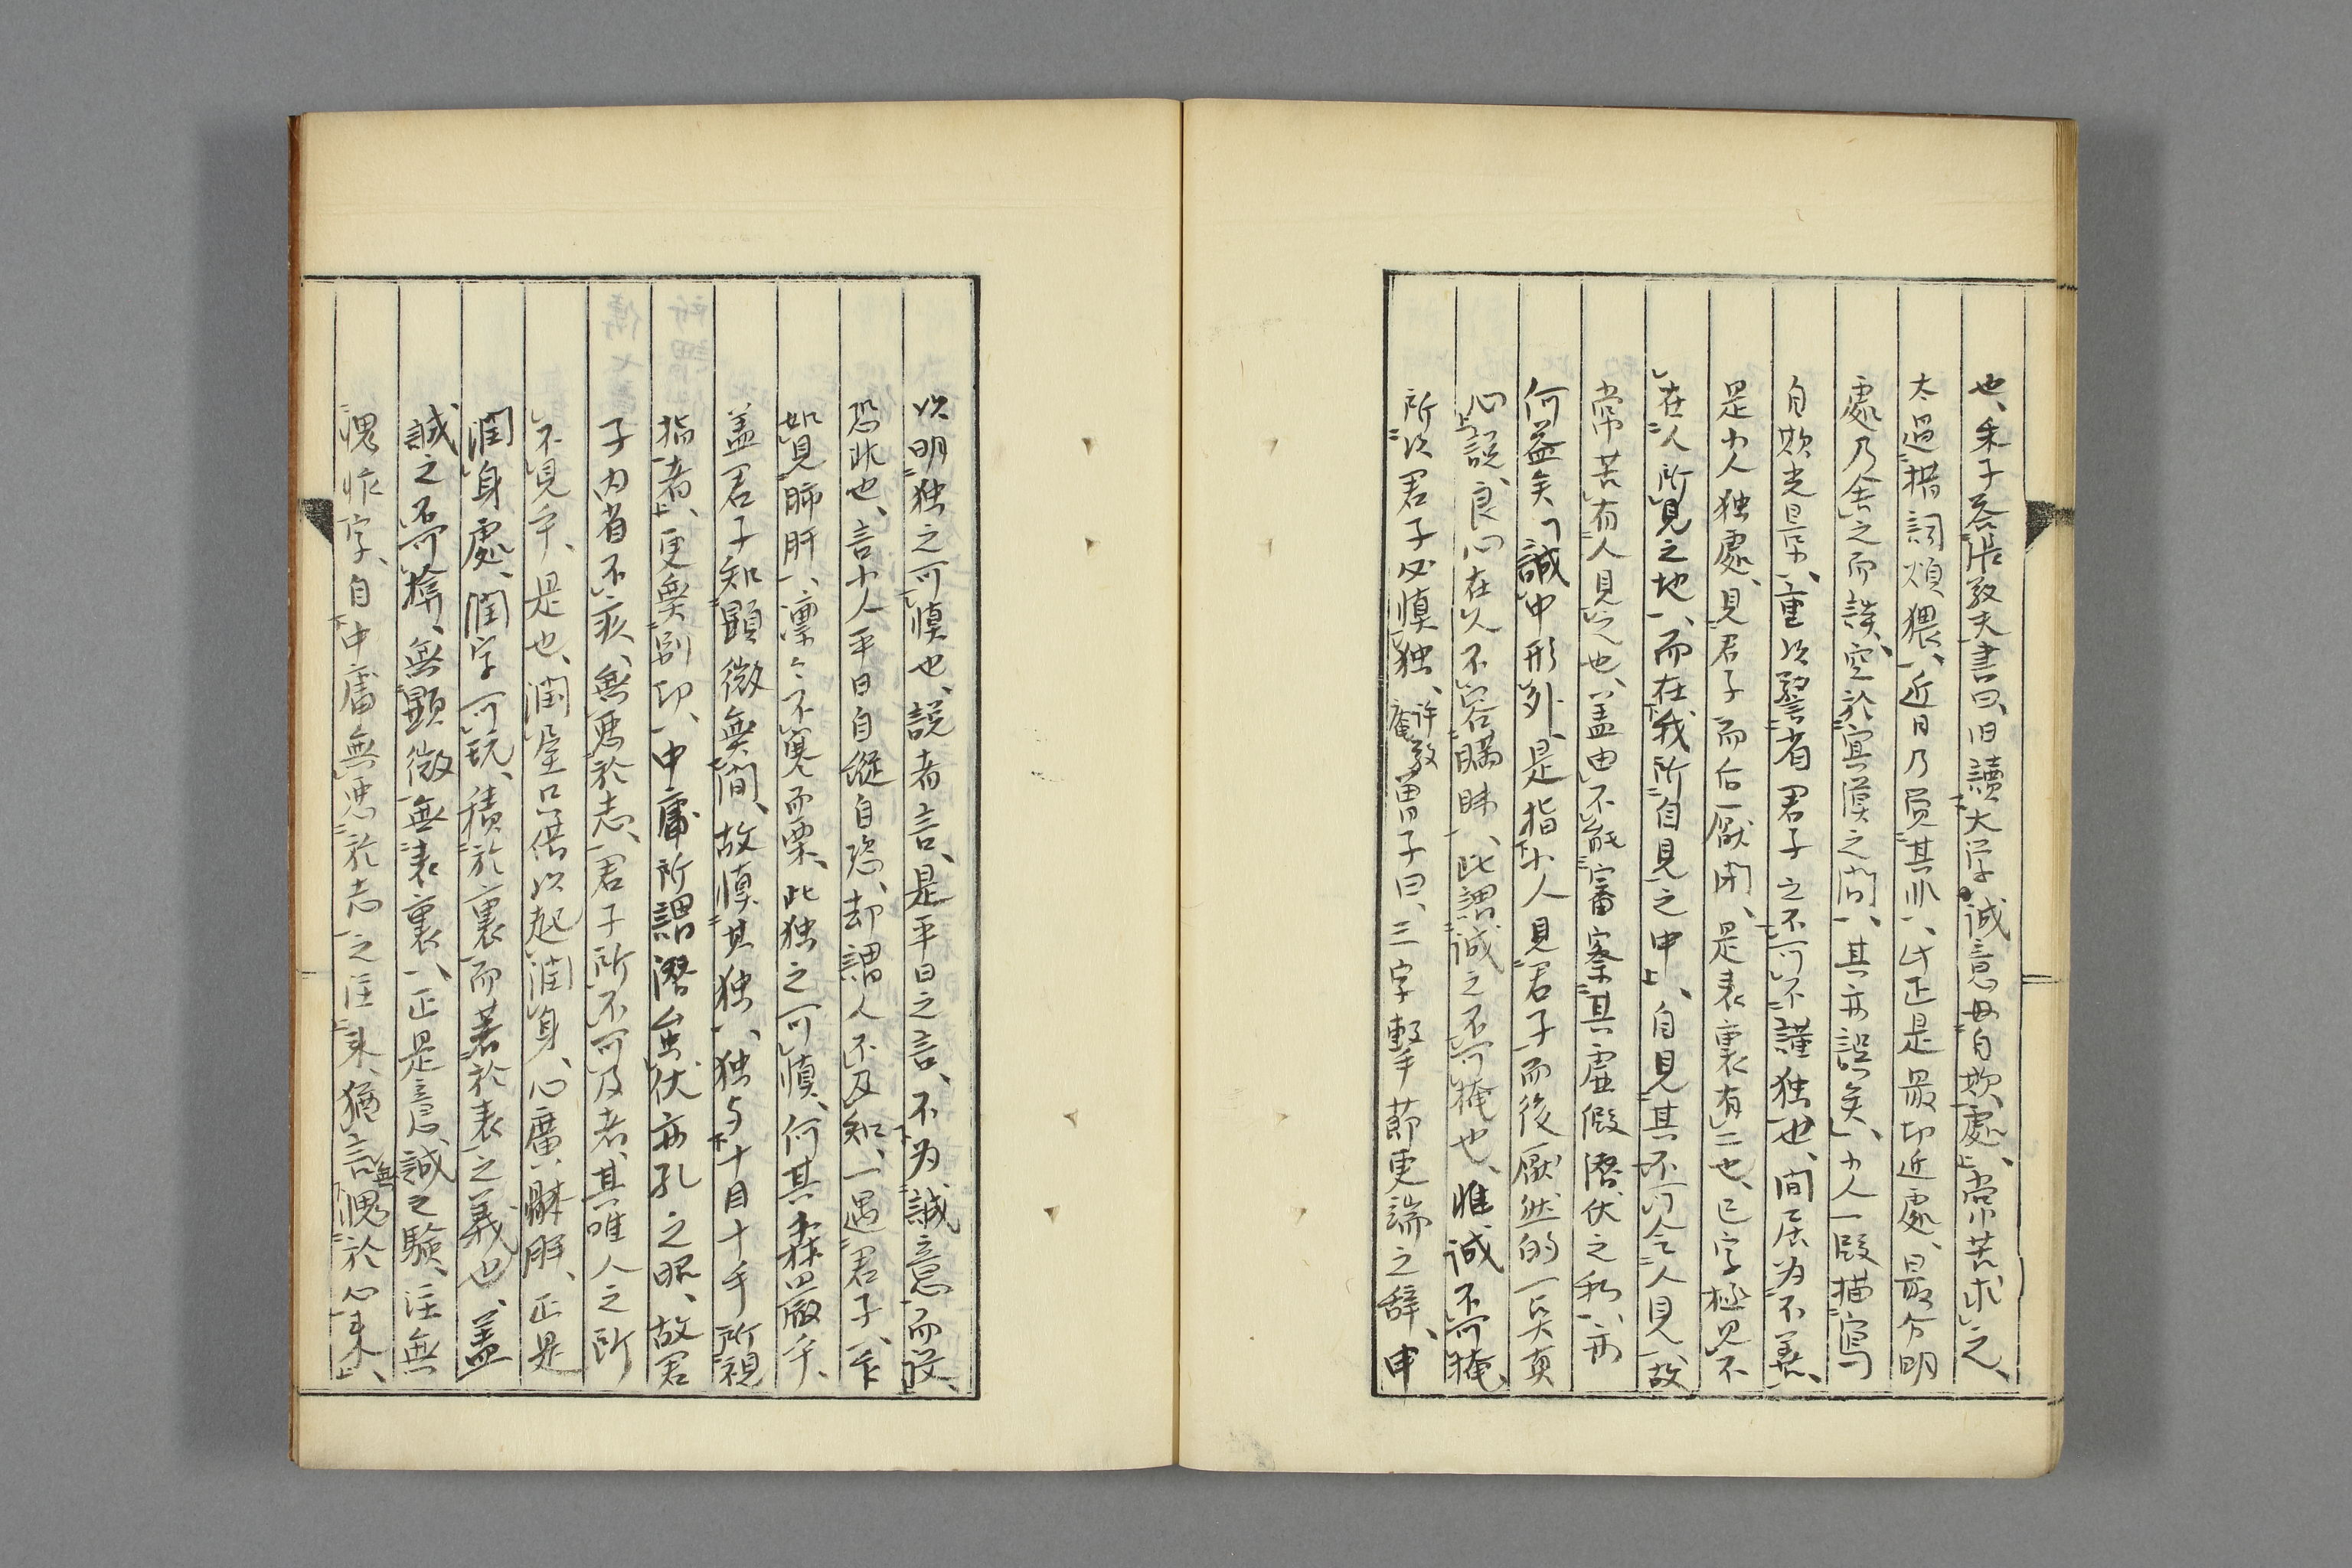 也、朱子荅張敬夫書曰、旧讀大学誠意毋自欺處、常苦求之、
太過措詞煩猥、近日乃覚其非、此正是最切近處、最分明
處、乃舍之而談空於冥漠之間、其亦誤矣、小人一段描寫
自欺光景、重以警省君子之不可不謹独也、間居为不善、
是小人独處、見君子而后厭閉、是表裏有二也、己字極見不
在人所見之地、而在我所自見之中、自見其不可令人見、故
常苦有人見之也、盖由不能審察其虚假潜伏之私、亦
何益矣、誠中形外、是指小人見君子而後厭然的一点真
心説、良心在人不容瞞昧、此謂誠之不可掩也、惟誠不可掩、
所以君子必慎独、許敬菴 曽子曰、三字擊節更端之辞、申
以明独之可慎也、説者言、是平日之言、不为誠意而設、
恐非也、言小人平日自縦自恣、却謂人不及知、一遇君子、乍
如見肺肝、凛〻不寒而栗、此独之可慎、何其森嚴乎、
盖君子知顕微無間、故慎其独、独与十目十手所視
指者、更無別功、中庸所謂潜虽伏亦孔之昭、故君
子内省不疚、無悪於志、君子所不可及者、其唯人之所
不見乎、是也、潤屋只借以起潤身、心廣體胖、正是
潤身處、潤字可玩、積於裏而著於表之義也、盖
誠之不可揜、無顕微無表裏、正是意誠之驗、注無
愧怍字、自中庸無悪於志之注来、猶言無愧於心来、